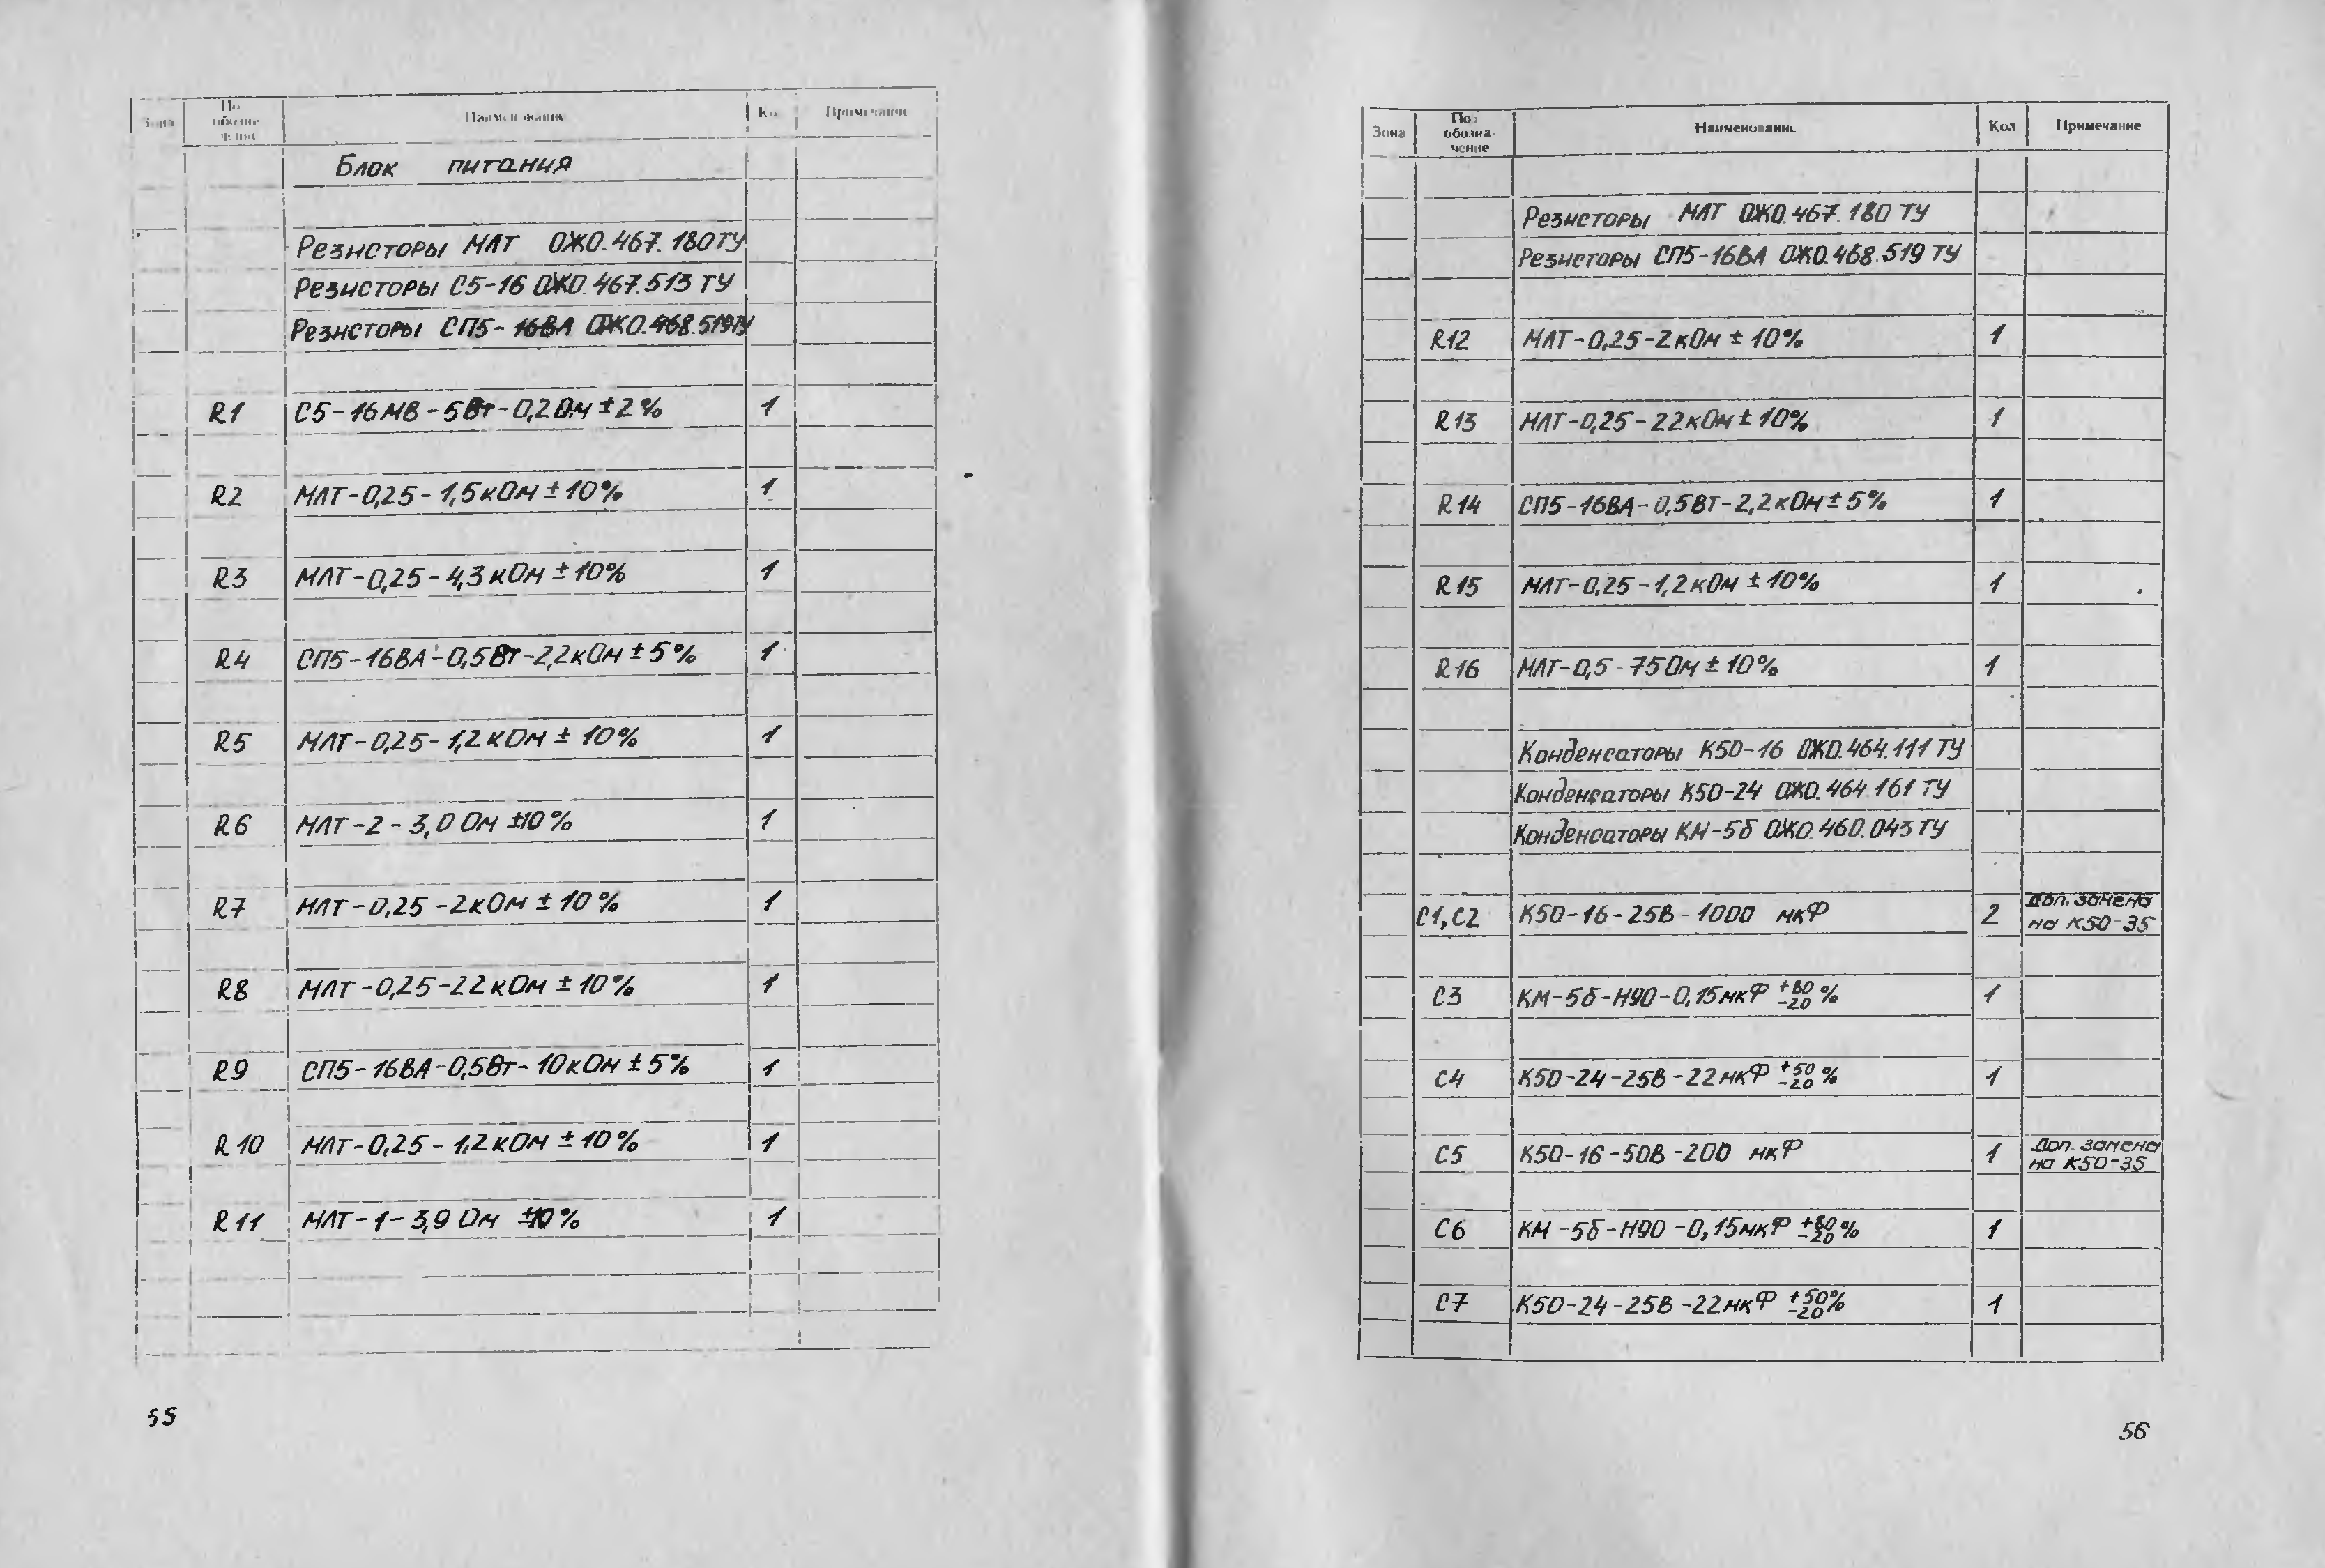 Зона По обозна- чение Наименование Кол Примечание
Блок питания
Резисторы МЛТ ОЖО.467.180ТУ
Резисторы С5-16 ОЖО.467.513 ТУ
Резисторы СП5-16ВА ОЖО.468.519ТУ
R1 С5-16МВ-5Вт-0,2Ом ±2% 1
R2 МЛТ-0,25-1,5кОм ±10% 1
R3 МЛТ-0,25-4,3кОм ±10% 1
R4 СП5-16ВА-0,5Вт-2,2кОм ±5% 1
R5 МЛТ-0,25-1,2кОм ± 10% 1
R6 МЛТ-2-3,0 Ом ±10% 1
R7 МЛТ-0,25-2кОм ± 10% 1
R8 МЛТ-0,25-22кОм ± 10% 1
R9 СП5-16ВА-0,5Вт-10кОм ±5% 1
R10 МЛТ-0,25-1,2кОм ±10% 1
R11 МЛТ-1-3,9 Ом ±10% 1
55
Зона Поз обозна- чение Наименование Кол Примечание
Резисторы МЛТ ОЖО.467.180 ТУ
Резисторы СП5-16ВА ОЖО.468.519 ТУ
R12 МЛТ-0,25-2кОм ± 10% 1
R13 МЛТ-0,25-22кОм ± 10% 1
R14 СП5-16ВА-0,5Вт-2,2кОм ± 5% 1
R15 МЛТ-0,25-1,2кОм ± 10% 1
R16 МЛТ-0,5-75Ом ± 10% 1
Конденсаторы К50-16 ОЖО.464.111 ТУ
Конденсаторы К50-24 ОЖО.464.161 ТУ
Конденсаторы КМ-5б ОЖО.460.043 ТУ
С1,С2 К50-16-25В-1000 мкФ 2 Доп. замена на К50-35
С3 КМ-5б-Н90-0,15мкФ +80 -20 % 1
С4 К50-24-25В-22мкФ +50 -20 % 1
С5 К50-16-50В-200 мкФ 1 Доп. замена на К50-35
С6 КМ-5б-Н90-0,15мкФ +80 -20 % 1
С7 К50-24-25В-22мкФ +50 -20 % 1
56